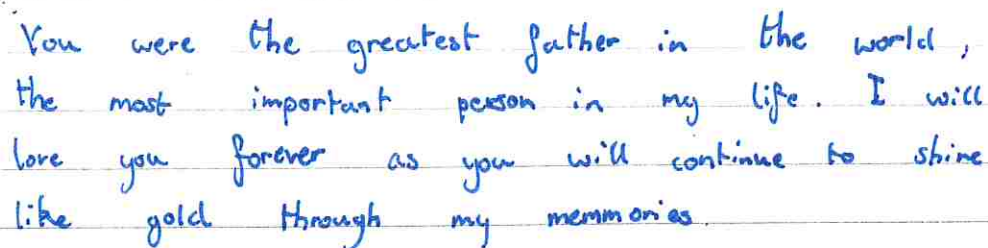 You were the greatest father in the world,
the most important person in my life. I will
love you forever as you will continue to shine
like gold through my memmories.